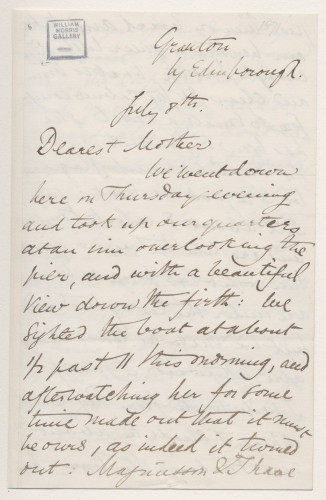 WILLIAM
MORRIS
GALLERY
Granton
by Edinborough.
July 8th.
Dearest Mother
We went down
here on Thursday evening
and took up our quarters
at an inn overlooking the
pier, and with a beautiful
view down the firth: we
sighted the boat at about
1/2 past 11 this morning, and
after watching her for some
time made out that it must
be ours, as indeed it turned
out: Magnusson & I have